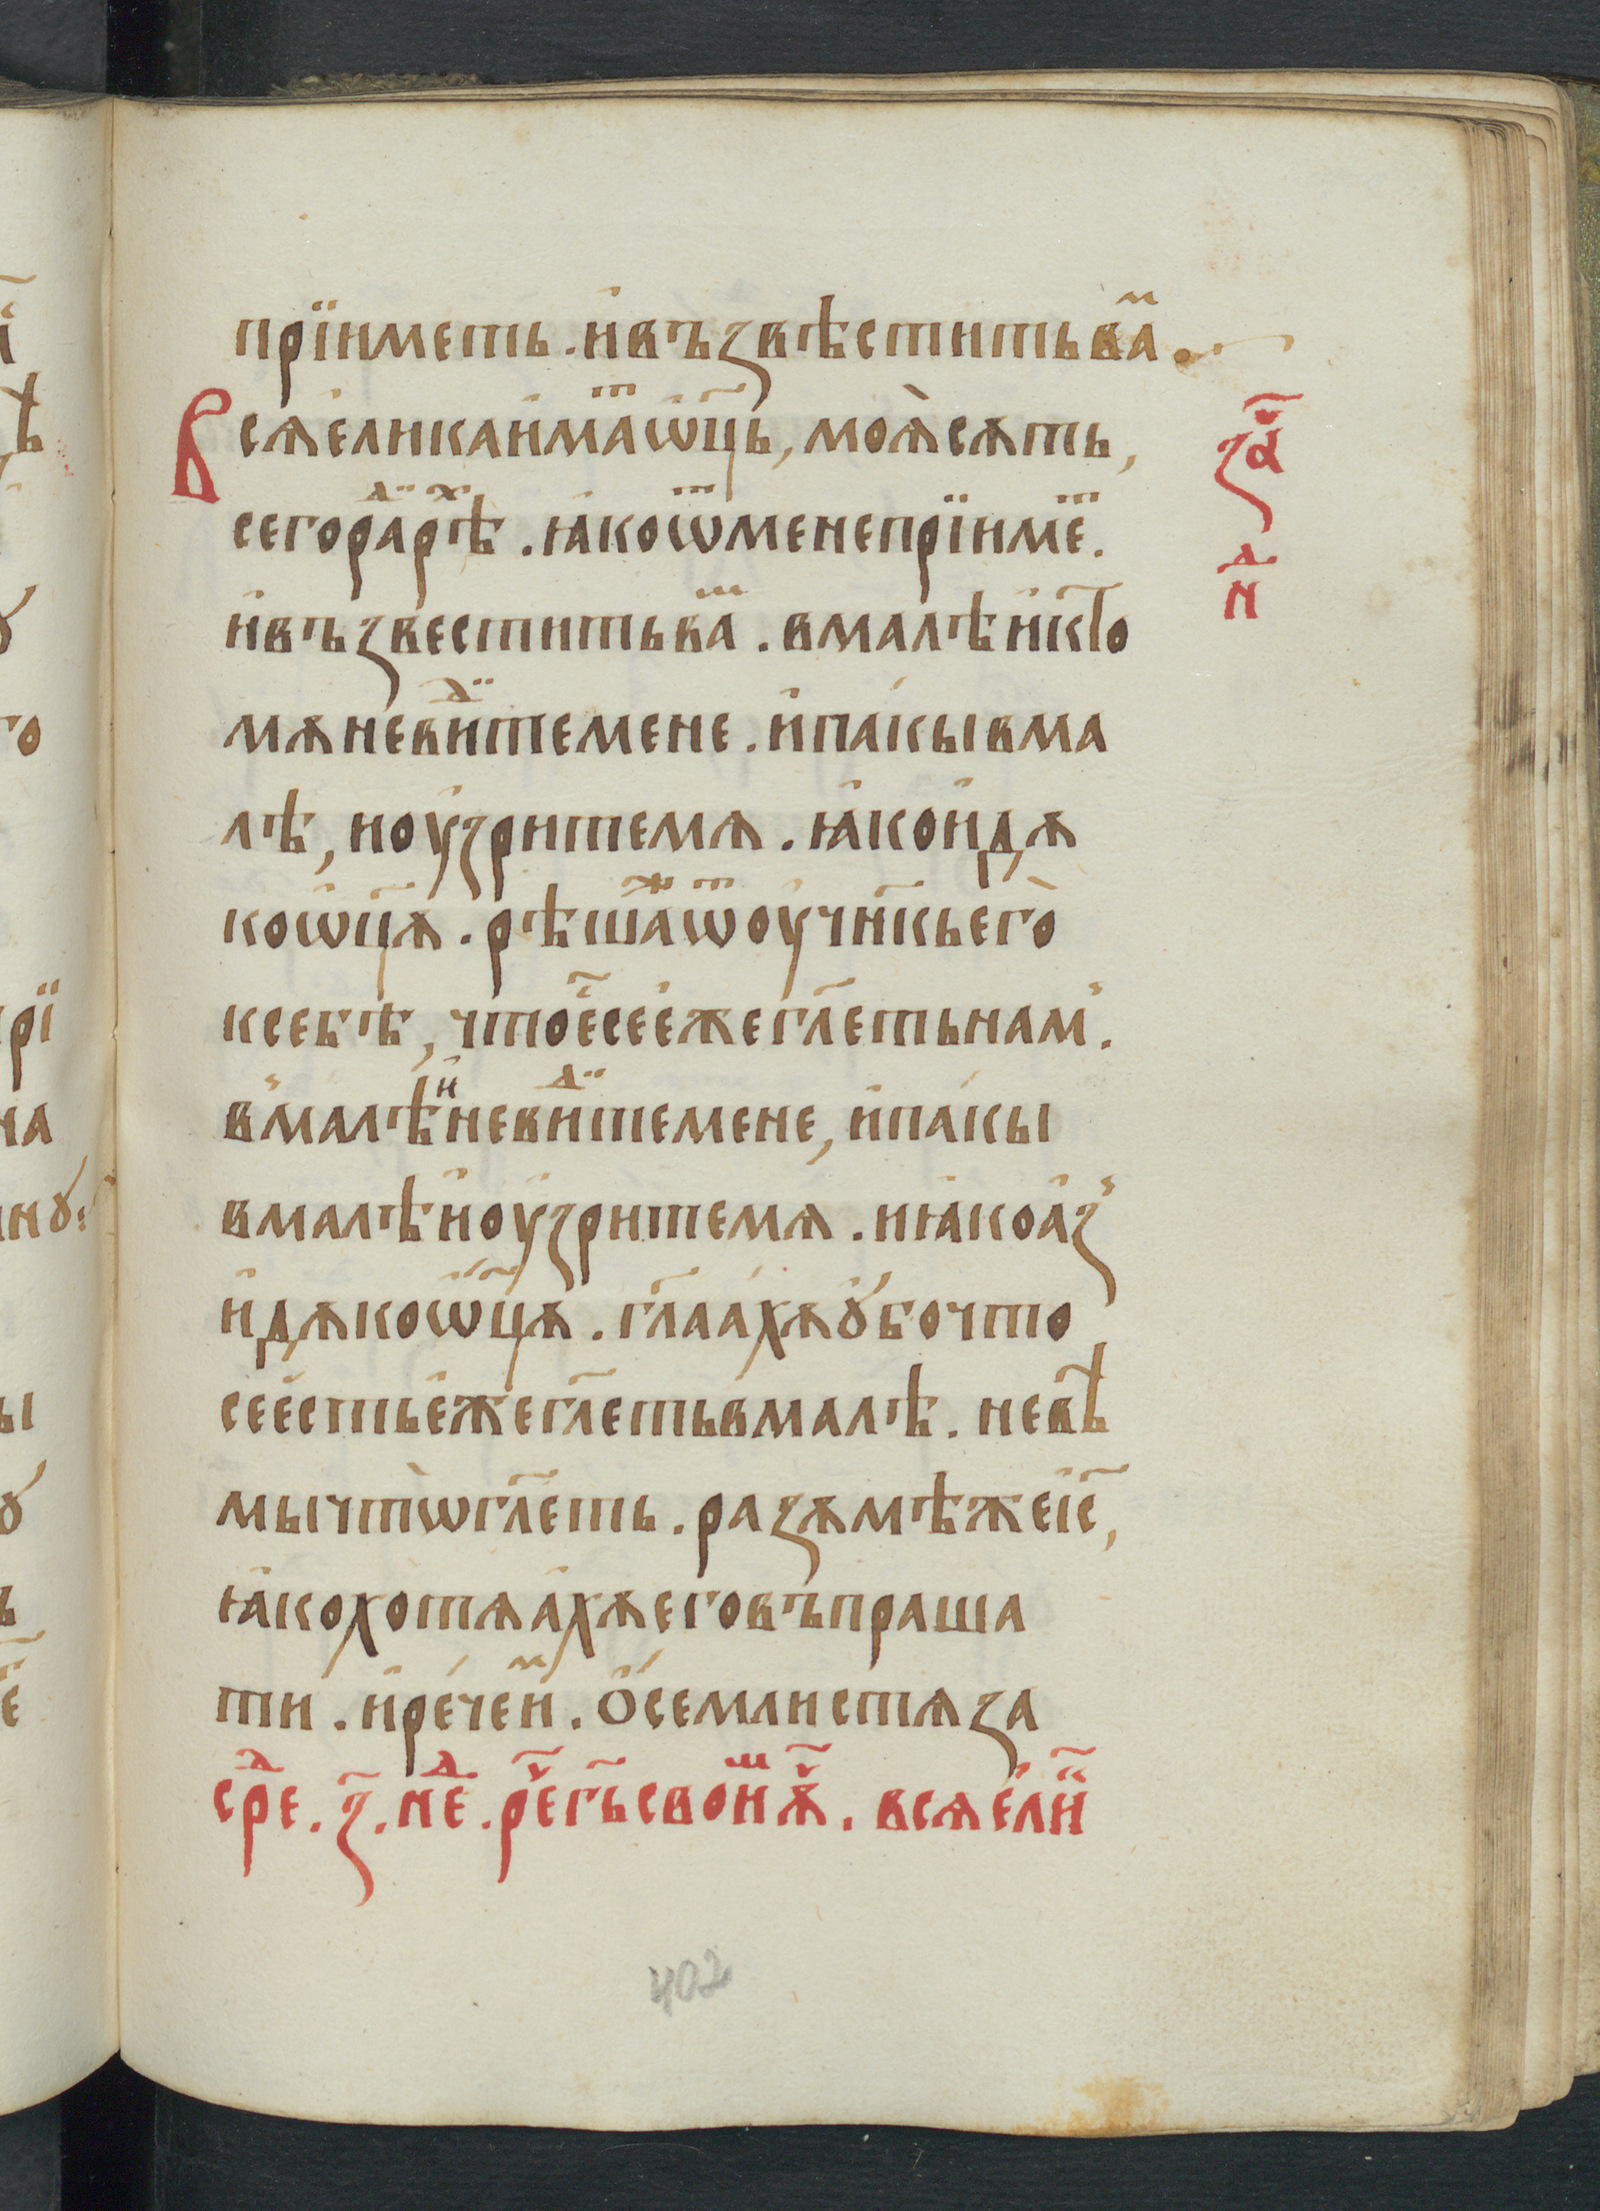 прїиметь . и҆ въꙁвѣститьваⷨ .
Всѧ є҆лика и҆маⷮ ѿц҃ь , моѧ̀ сѫть ,
сегораⷣ рѣⷯ . ꙗ҆ко ѿ мене прїимеⷮ .
и҆ въꙁвеститьваⷨ . в малѣ и҆ к҃то
мѫ не виⷣте мене . и҆ пакы в ма
лѣ , и оу҆ꙁрите мѧ . ꙗ҆ко и҆дѫ
ко ѿц҃ѫ . рѣшаⷤ ѿ оу҆чн҃кь є҆гѡ̀
к себѣ , что є҆с҃ се є҆же гл҃еть нам .
в малѣ и не виⷣте мене , и҆ пакы
в малѣ и҆ оу҆ꙁрите мѧ . и ꙗ҆ко а҆ꙁ
и҆дѫ ко ѿц҃ѫ . гл҃аахѫ ꙋ҆бо что
се є҆сть є҆же гл҃еть в малѣ . не вѣ
мы чтѡ̀ гл҃еть . раꙁѫмѣ же і҆с҃ ,
ꙗ҆ко хотѧахѫ его въпраша
ти . и҆ рече и҆ⷨ . ѻ҆ семли стѧꙁа
срⷣе . ꙁ҃ . неⷣ . ре҃ гь҃ свои . всѧ є҆ли
ꙁа҃
нⷣ
402